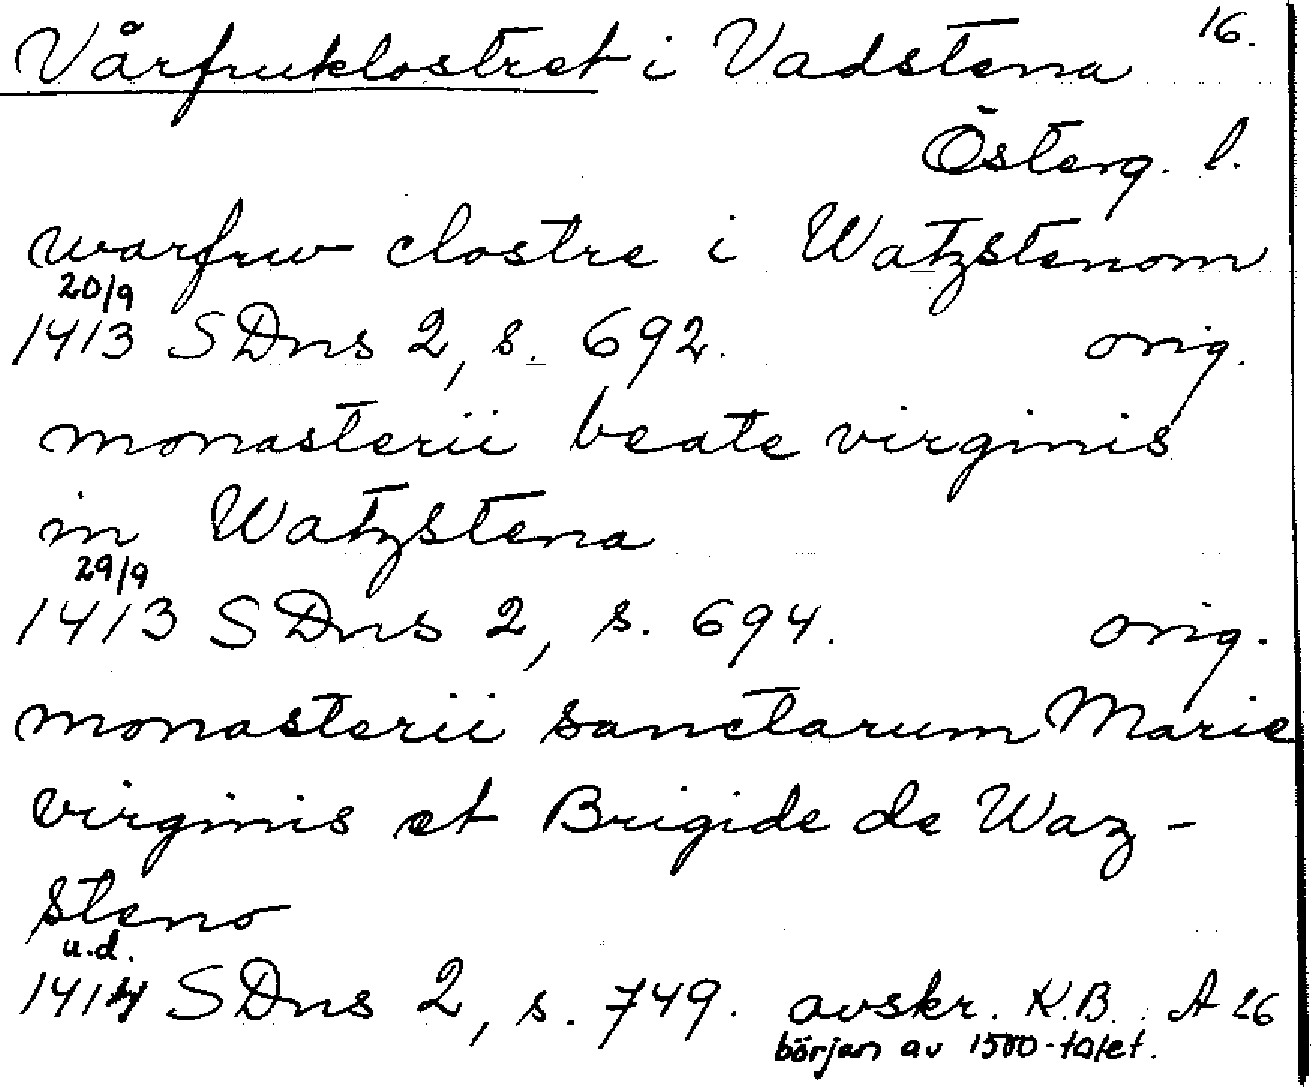 Vårfruklostret i Vadstena 16.
Österg. l.
warfrw clostre i Watzstenom
20/9
1413 SDns 2, s. 692. orig.
monasterii beate virginis
in Watzstena
29/9
1413 SDns 2, s. 694. orig.
monasterii sanctarum Marie
virginis et Brigide de Waz-
steno
u.d.
1414 SDns 2, s. 749. avskr. K.B. A 26
början av 1500-talet.